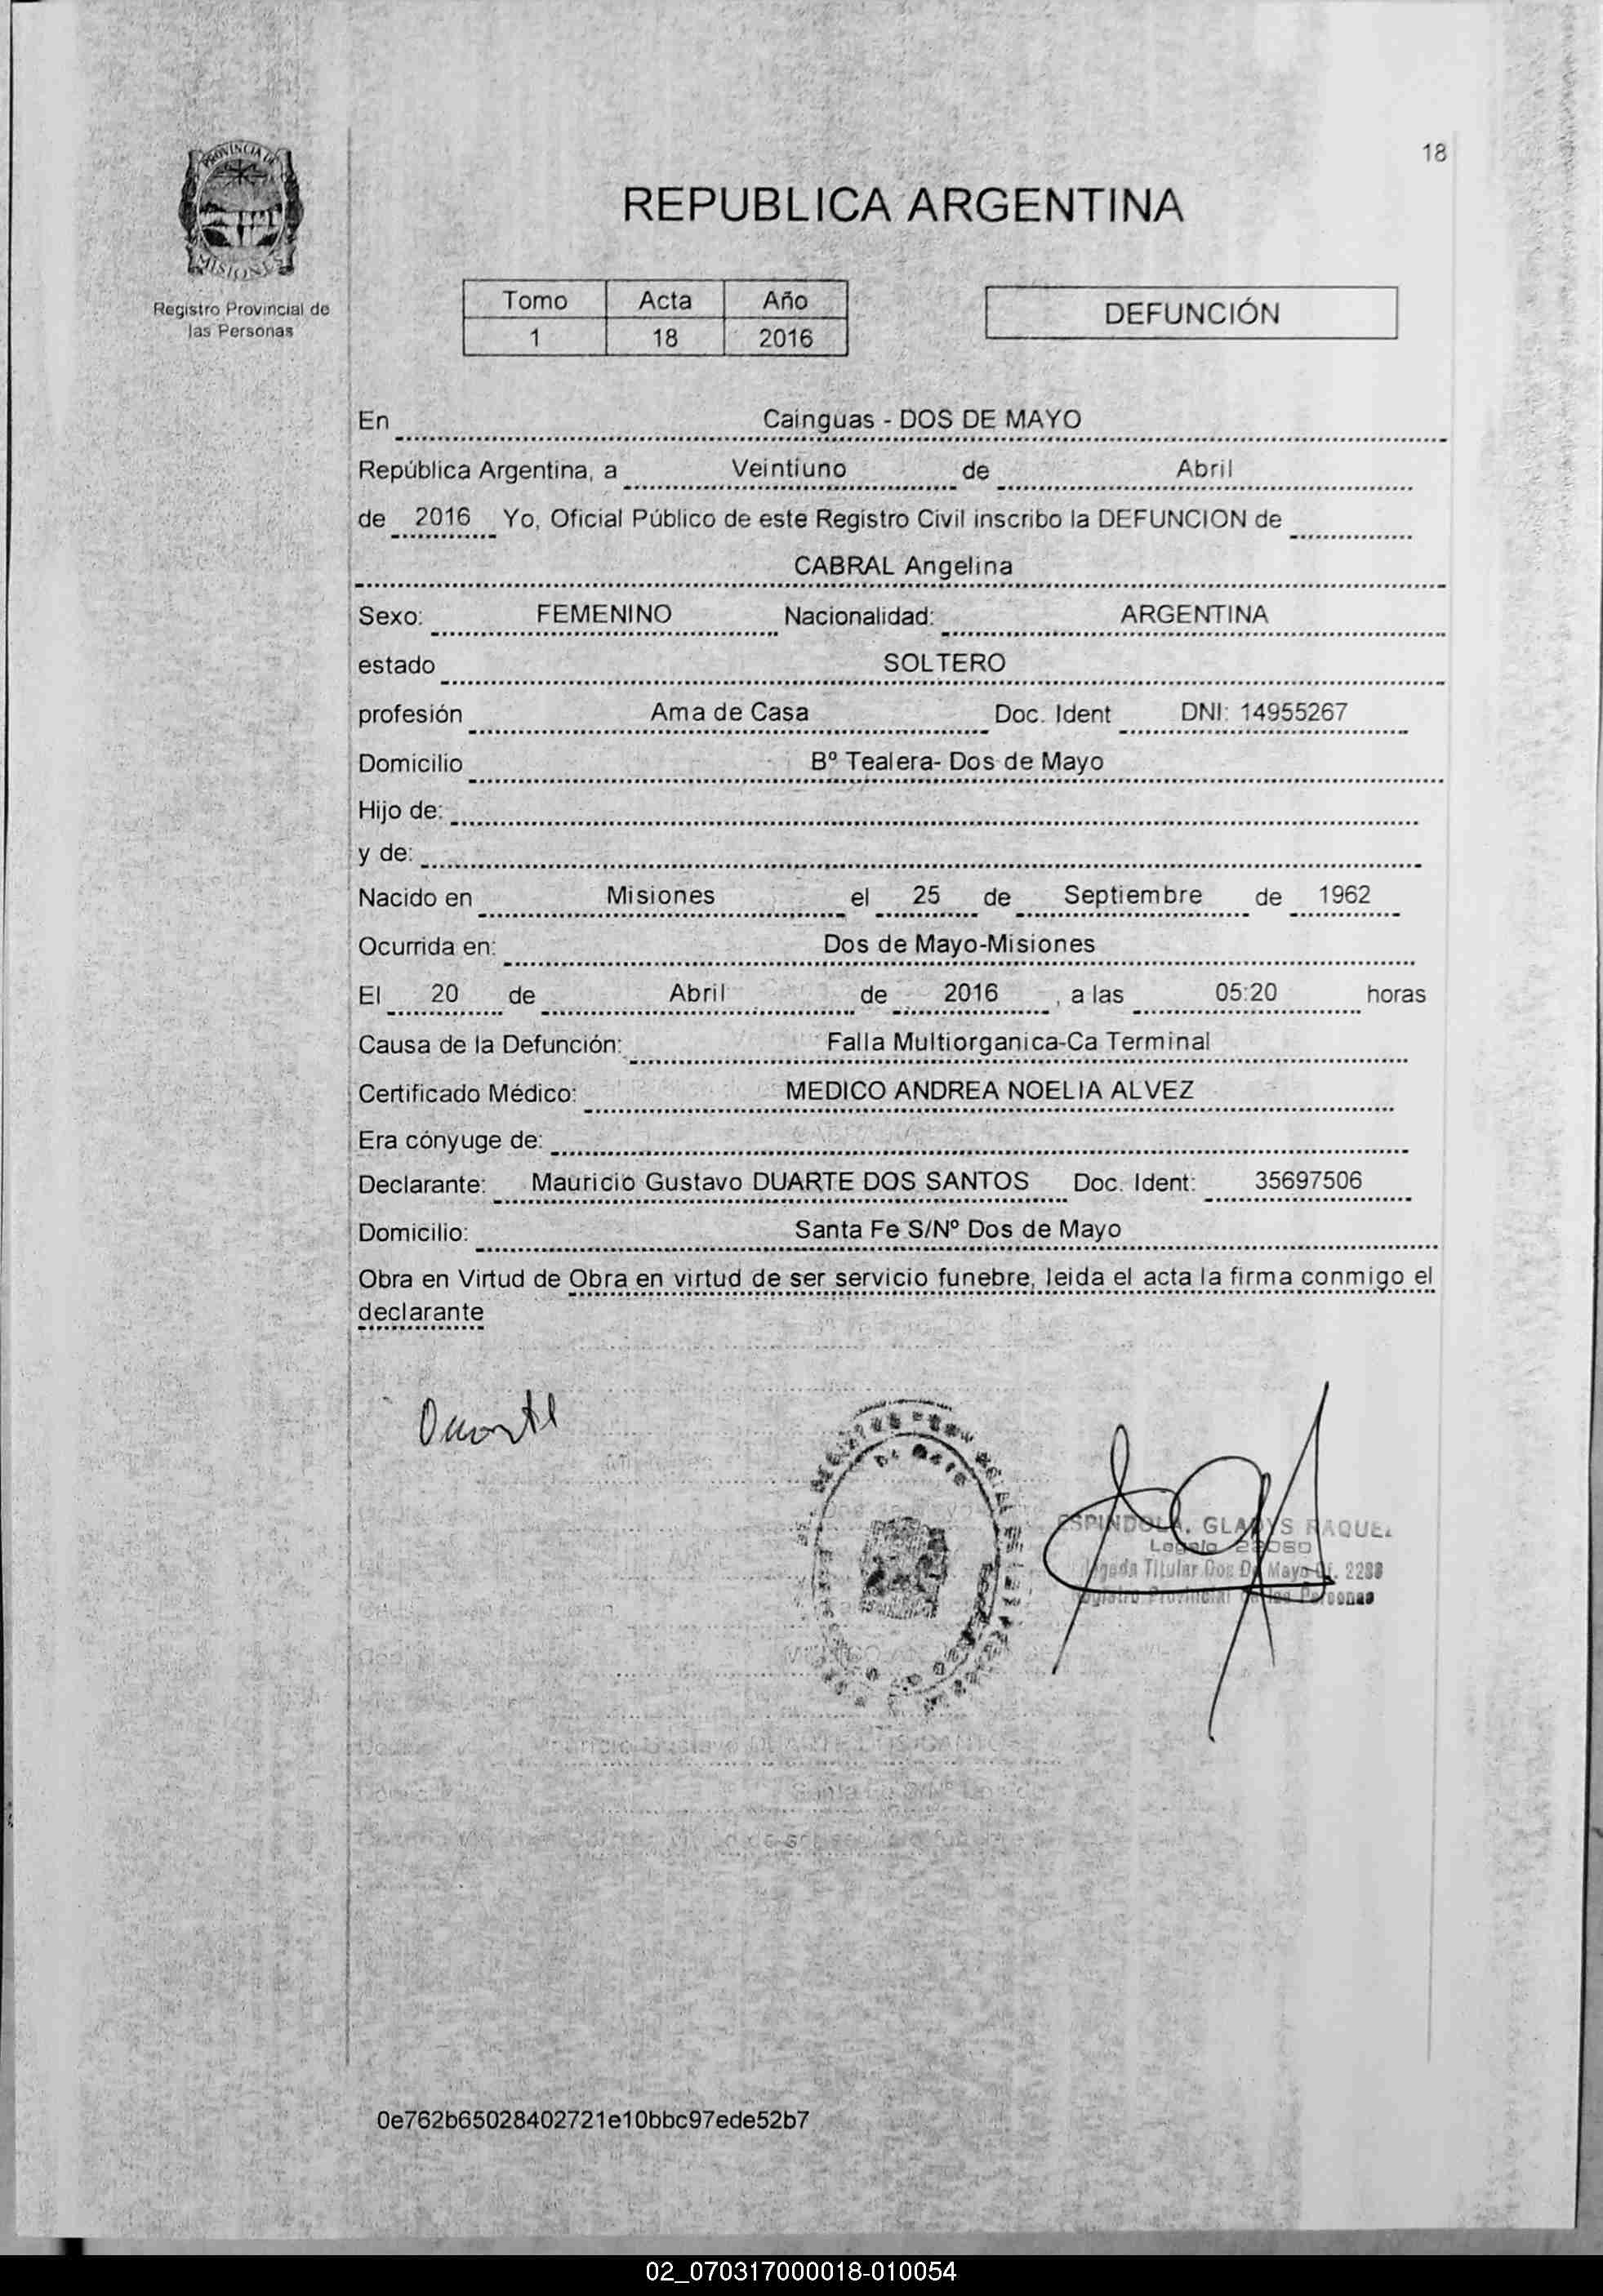 18
PROVINCIA DE
MISIONES
Registro Provincial de
las Personas
REPUBLICA ARGENTINA
Tomo Acta Año
1 18 2016
DEFUNCIÓN
En Cainguas - DOS DE MAYO
República Argentina, a Veintiuno de Abril
de 2016 Yo, Oficial Público de este Registro Civil inscribo la DEFUNCION de
CABRAL Angelina
Sexo: FEMENINO Nacionalidad: ARGENTINA
estado SOLTERO
profesión Ama de Casa Doc. Ident DNI: 14955267
Domicilio Bº Tealera- Dos de Mayo
Hijo de:
y de:
Nacido en Misiones el 25 de Septiembre de 1962
Ocurrida en: Dos de Mayo-Misiones
El 20 de Abril de 2016 , a las 05:20 horas
Causa de la Defunción: Falla Multiorganica-Ca Terminal
Certificado Médico: MEDICO ANDREA NOELIA ALVEZ
Era cónyuge de:
Declarante: Mauricio Gustavo DUARTE DOS SANTOS Doc. Ident: 35697506
Domicilio: Santa Fe S/Nº Dos de Mayo
Obra en Virtud de Obra en virtud de ser servicio funebre, leida el acta la firma conmigo el
declarante
Duarte
ESPINDOLA, GLADYS RAQUEL
Titular Dos De Mayo 2288
Provincial de las Personas
0e762b65028402721e10bbc97ede52b7
02_070317000018-010054